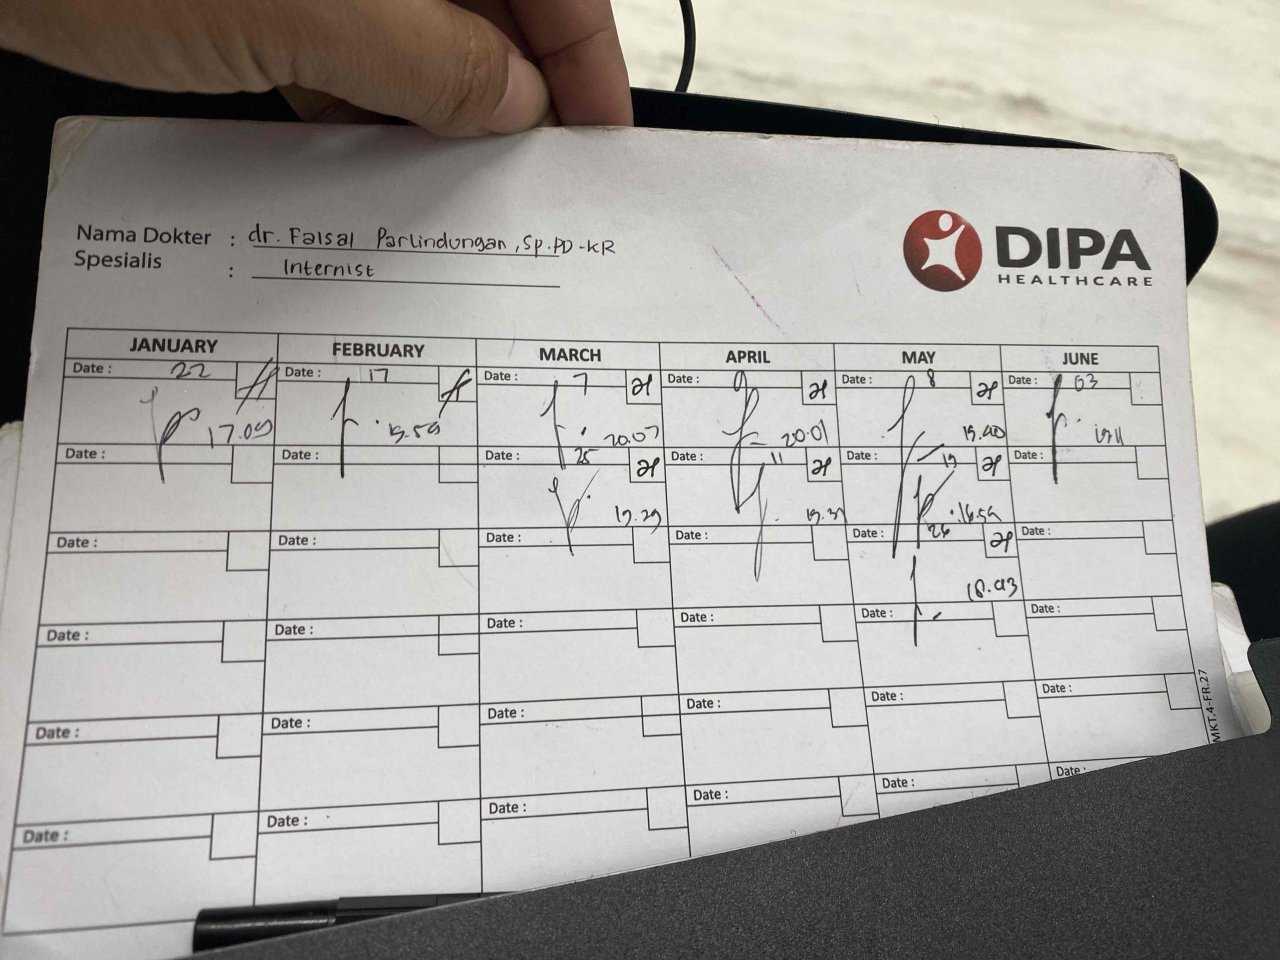 Nama Dokter : dr. Faisal Parlindungan, Sp.PD-KR
Spesialis : Internist
DIPA
HEALTHCARE
JANUARY FEBRUARY MARCH APRIL MAY JUNE
Date : 22 Date : 17 Date : 7 Date : 9 Date : 8 Date : 03
17.09 20.07 20.01
Date : Date : Date : 25 Date : 11 Date : 19 Date :
Date : Date : Date : Date : Date : 26 Date :
18.43
Date : Date : Date : Date : Date : Date :
Date : Date : Date : Date : Date : Date :
Date : Date : Date : Date : Date : Date :
MKT.4-FR.27